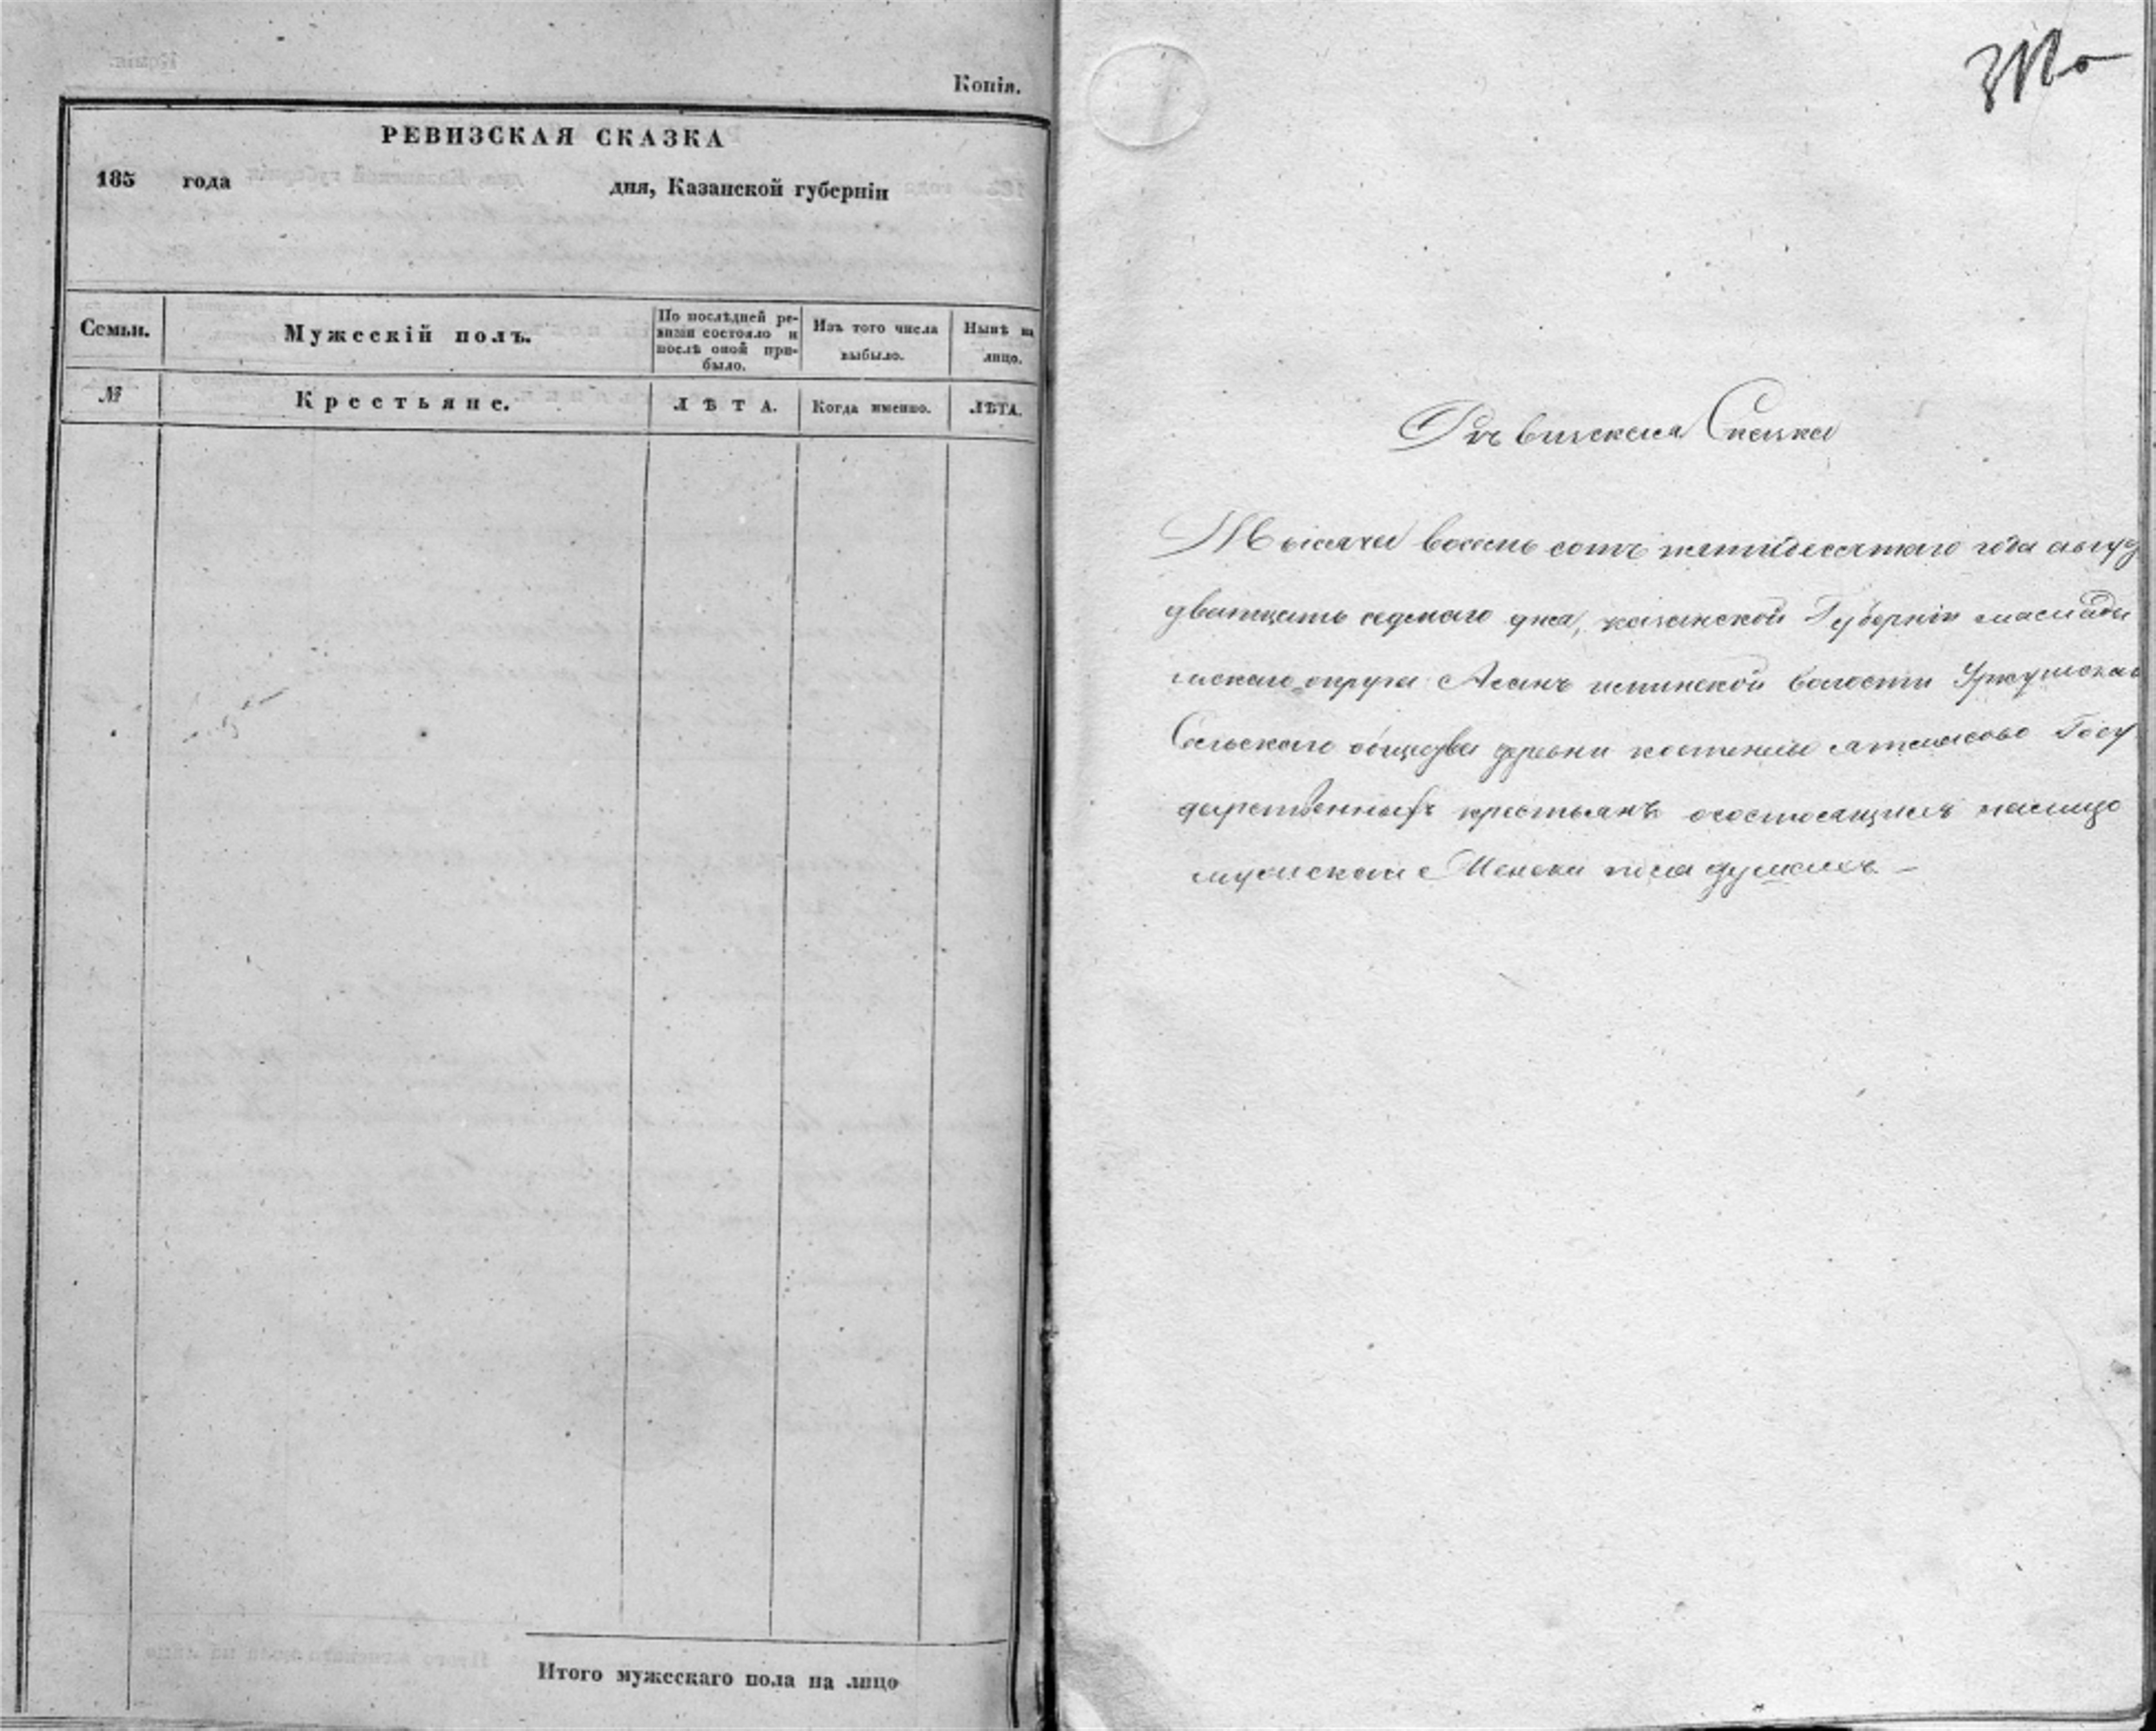 Копія.
РЕВИЗСКАЯ СКАЗКА
185 года дня, Казанской губерніи
Семьи.
Мужескій полъ.
По послѣдней ре-
визіи состояло и
послѣ оной при-
было.
Изъ того числа
выбыло.
Нынѣ на
лицо.
№
Крестьяне.
ЛѢТА.
Когда именно.
ЛѢТА.
Итого мужескаго пола на лицо
Ревизская Сказка
Тысяча восемь сотъ пятидесятаго года авгус
дватцать седмаго дня, казанской Губерніи мамады
шскаго округа Асанъ илинской волости
Сельскаго общества деревни Госу
дарственныхъ крестьянъ осостоящихъ налицо
мужскаго Женска пола душахъ